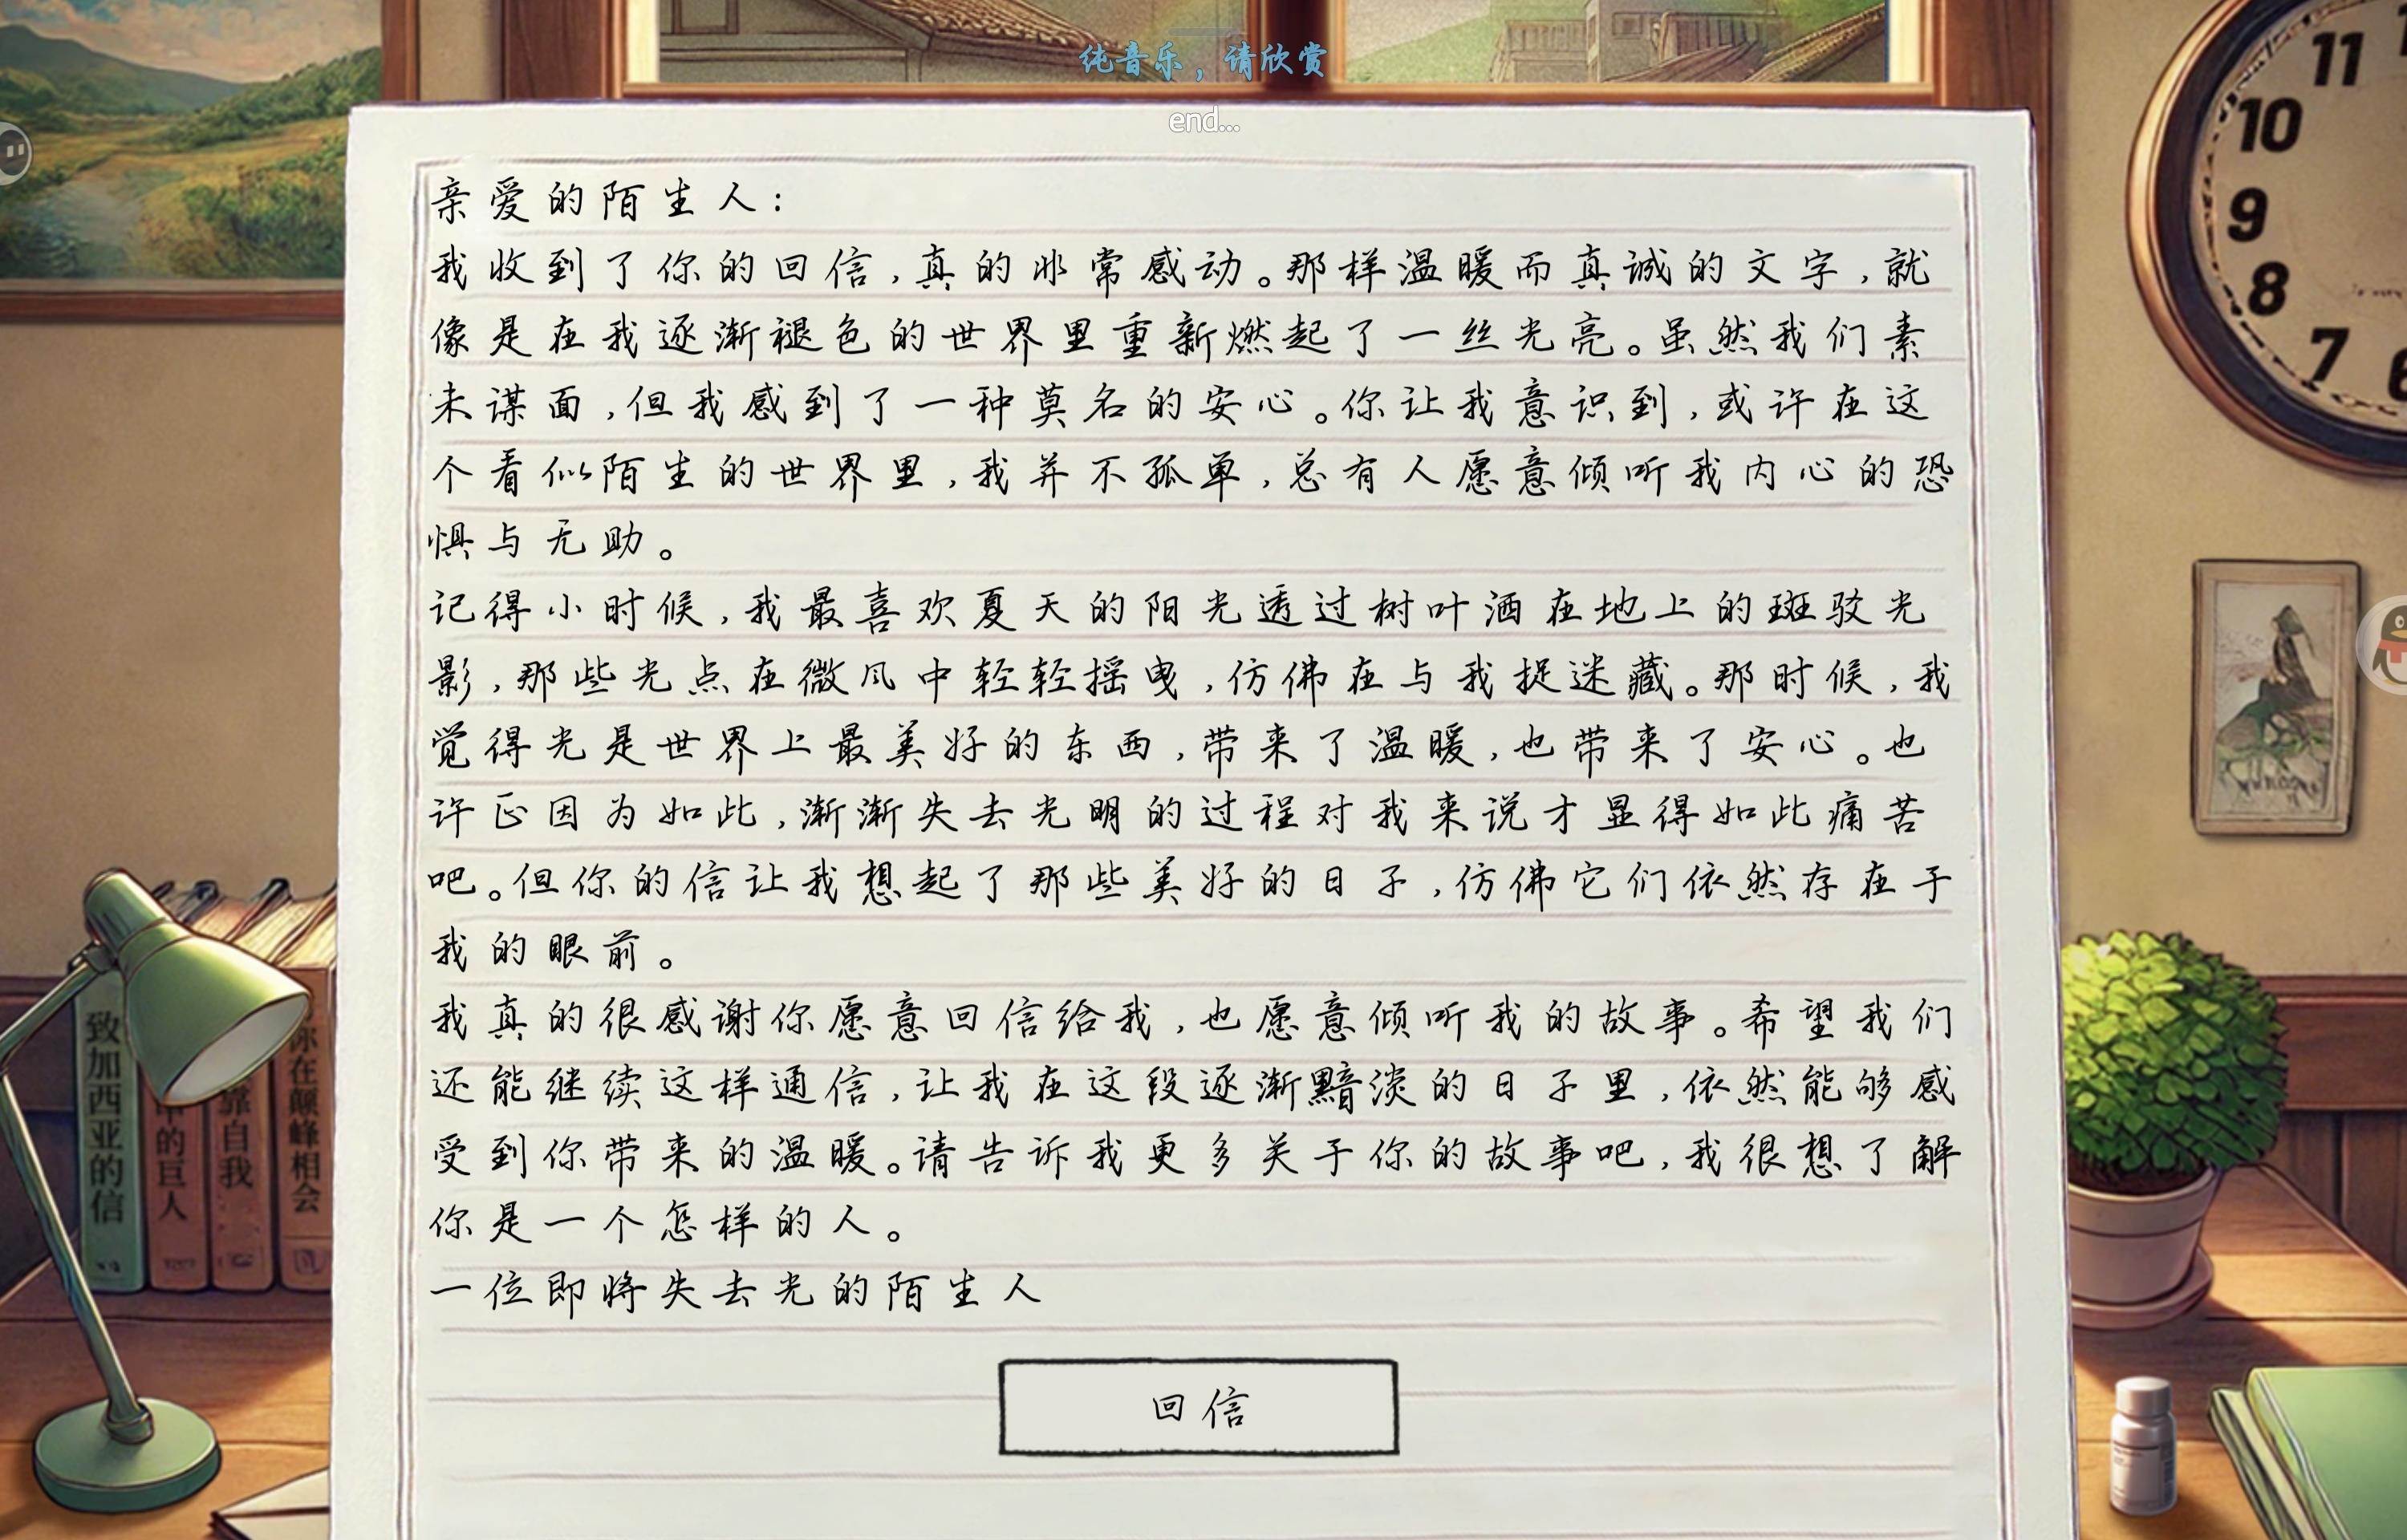 纯音乐，请欣赏
end...
亲爱的陌生人：
我收到了你的回信，真的非常感动。那样温暖而真诚的文字，就
像是在我逐渐褪色的世界里重新燃起了一丝光亮。虽然我们素
未谋面，但我感到了一种莫名的安心。你让我意识到，或许在这
个看似陌生的世界里，我并不孤单，总有人愿意倾听我内心的恐
惧与无助。
记得小时候，我最喜欢夏天的阳光透过树叶洒在地上的斑驳光
影，那些光点在微风中轻轻摇曳，仿佛在与我捉迷藏。那时候，我
觉得光是世界上最美好的东西，带来了温暖，也带来了安心。也
许正因为如此，渐渐失去光明的过程对我来说才显得如此痛苦
吧。但你的信让我想起了那些美好的日子，仿佛它们依然存在于
我的眼前。
我真的很感谢你愿意回信给我，也愿意倾听我的故事。希望我们
还能继续这样通信，让我在这段逐渐黯淡的日子里，依然能够感
受到你带来的温暖。请告诉我更多关于你的故事吧，我很想了解
你是一个怎样的人。
一位即将失去光的陌生人
回信
致加西亚的信
中的巨人
靠自我
你在巅峰相会
11
10
9
8
7
6